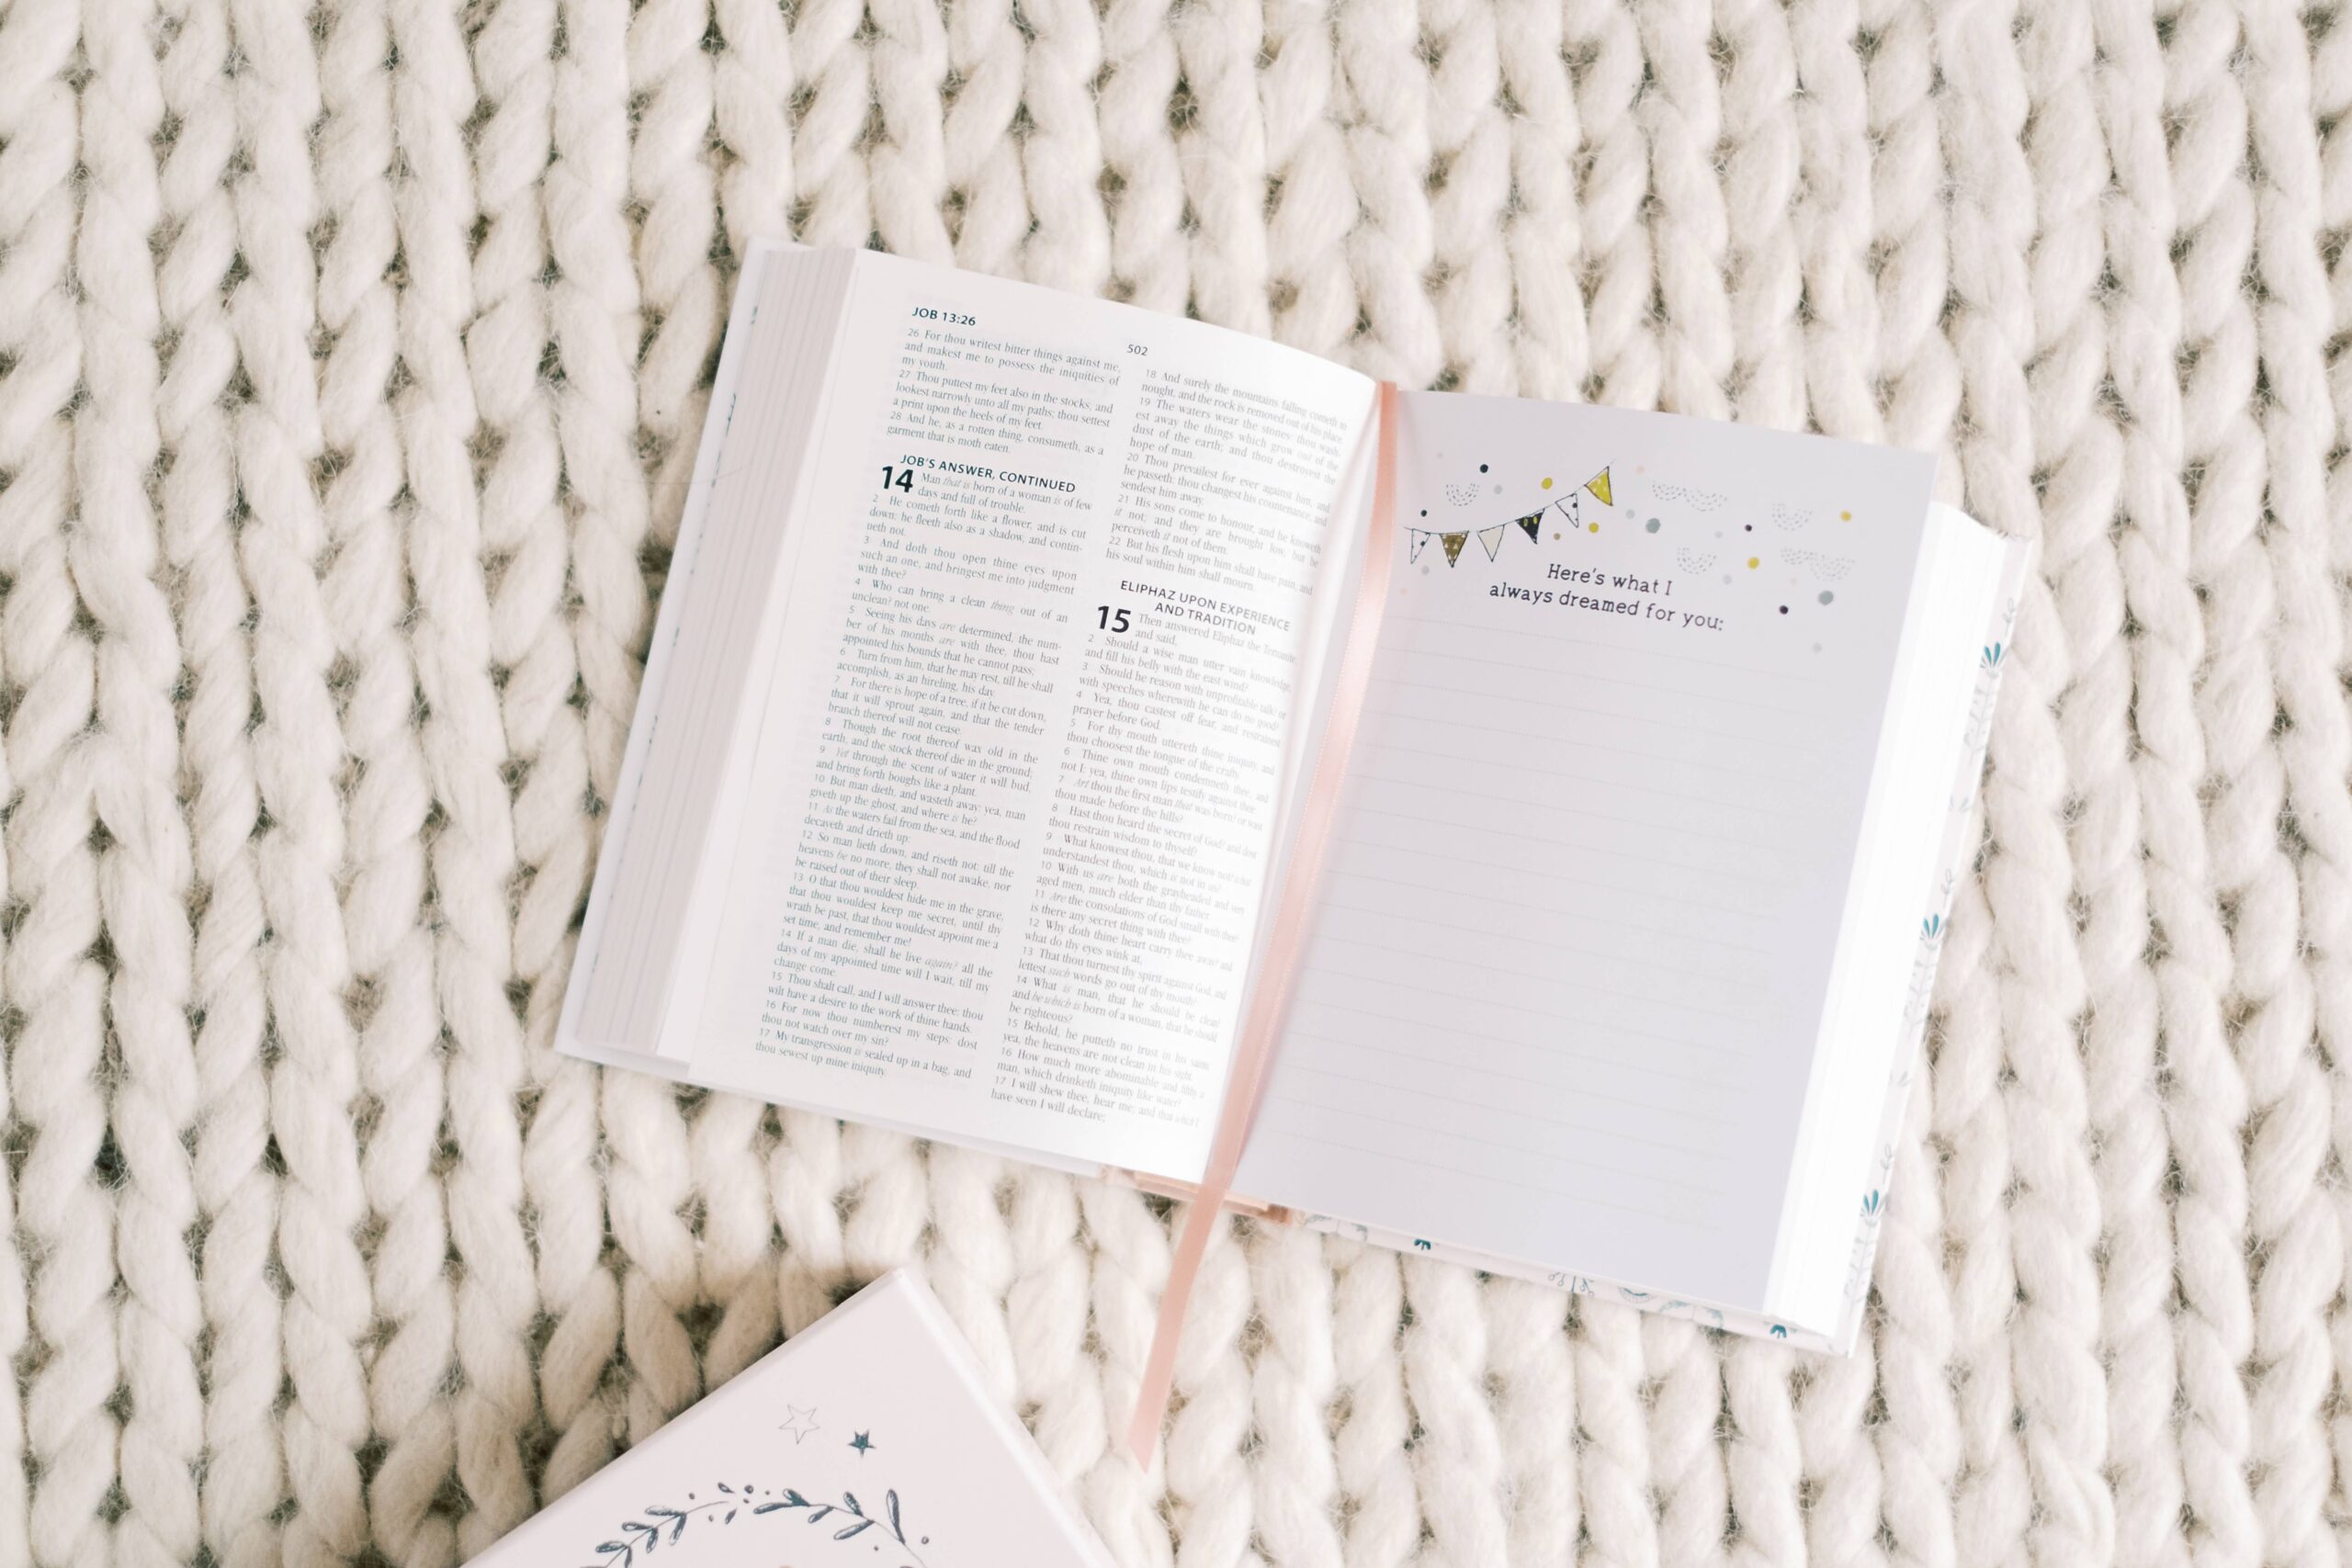 JOB 13:26
26 For thou writest bitter things against me,
and makest me to possess the iniquities of
my youth.
27 Thou puttest my feet also in the stocks, and
lookest narrowly unto all my paths; thou settest
a print upon the heels of my feet.
28 And he, as a rotten thing, consumeth, as a
garment that is moth eaten.
JOB'S ANSWER, CONTINUED
14 Man that is born of a woman is of few
days and full of trouble.
2 He cometh forth like a flower, and is cut
down: he fleeth also as a shadow, and contin-
ueth not.
3 And doth thou open thine eyes upon
such an one, and bringest me into judgment
with thee?
4 Who can bring a clean thing out of an
unclean? not one.
5 Seeing his days are determined, the num-
ber of his months are with thee, thou hast
appointed his bounds that he cannot pass;
6 Turn from him, that he may rest, till he shall
accomplish, as an hireling, his day.
7 For there is hope of a tree, if it be cut down,
that it will sprout again, and that the tender
branch thereof will not cease.
8 Though the root thereof was old in the
earth, and the stock thereof die in the ground;
9 Yet through the scent of water it will bud,
and bring forth boughs like a plant.
10 But man dieth, and wasteth away: yea, man
giveth up the ghost, and where is he?
11 As the waters fail from the sea, and the flood
decayeth and drieth up:
12 So man lieth down, and riseth not: till the
heavens be no more, they shall not awake, nor
be raised out of their sleep.
13 O that thou wouldest hide me in the grave,
that thou wouldest keep me secret, until thy
wrath be past, that thou wouldest appoint me a
set time, and remember me!
14 If a man die, shall he live again? all the
days of my appointed time will I wait, till my
change come.
15 Thou shalt call, and I will answer thee: thou
wilt have a desire to the work of thine hands.
16 For now thou numberest my steps: dost
thou not watch over my sin?
17 My transgression is sealed up in a bag, and
thou sewest up mine iniquity.
502
18 And surely the mountains falling cometh to
nought, and the rock is removed out of his place.
19 The waters wear the stones: thou wash-
est away the things which grow out of the
dust of the earth; and thou destroyest the
hope of man.
20 Thou prevailest for ever against him, and
he passeth: thou changest his countenance, and
sendest him away.
21 His sons come to honour, and he knoweth
it not; and they are brought low, but he
perceiveth it not of them.
22 But his flesh upon him shall have pain, and
his soul within him shall mourn.
ELIPHAZ UPON EXPERIENCE
AND TRADITION
15 Then answered Eliphaz the Temanite,
and said,
2 Should a wise man utter vain knowledge,
and fill his belly with the east wind?
3 Should he reason with unprofitable talk? or
with speeches wherewith he can do no good?
4 Yea, thou castest off fear, and restrainest
prayer before God.
5 For thy mouth uttereth thine iniquity, and
thou choosest the tongue of the crafty.
6 Thine own mouth condemneth thee, and
not I: yea, thine own lips testify against thee.
7 Art thou the first man that was born? or wast
thou made before the hills?
8 Hast thou heard the secret of God? and dost
thou restrain wisdom to thyself?
9 What knowest thou, that we know not? what
understandest thou, which is not in us?
10 With us are both the grayheaded and very
aged men, much elder than thy father.
11 Are the consolations of God small with thee?
is there any secret thing with thee?
12 Why doth thine heart carry thee away? and
what do thy eyes wink at,
13 That thou turnest thy spirit against God, and
lettest such words go out of thy mouth?
14 What is man, that he should be clean?
and he which is born of a woman, that he should
be righteous?
15 Behold, he putteth no trust in his saints;
yea, the heavens are not clean in his sight.
16 How much more abominable and filthy is
man, which drinketh iniquity like water?
17 I will shew thee, hear me; and that which I
have seen I will declare;
Here's what I
always dreamed for you: